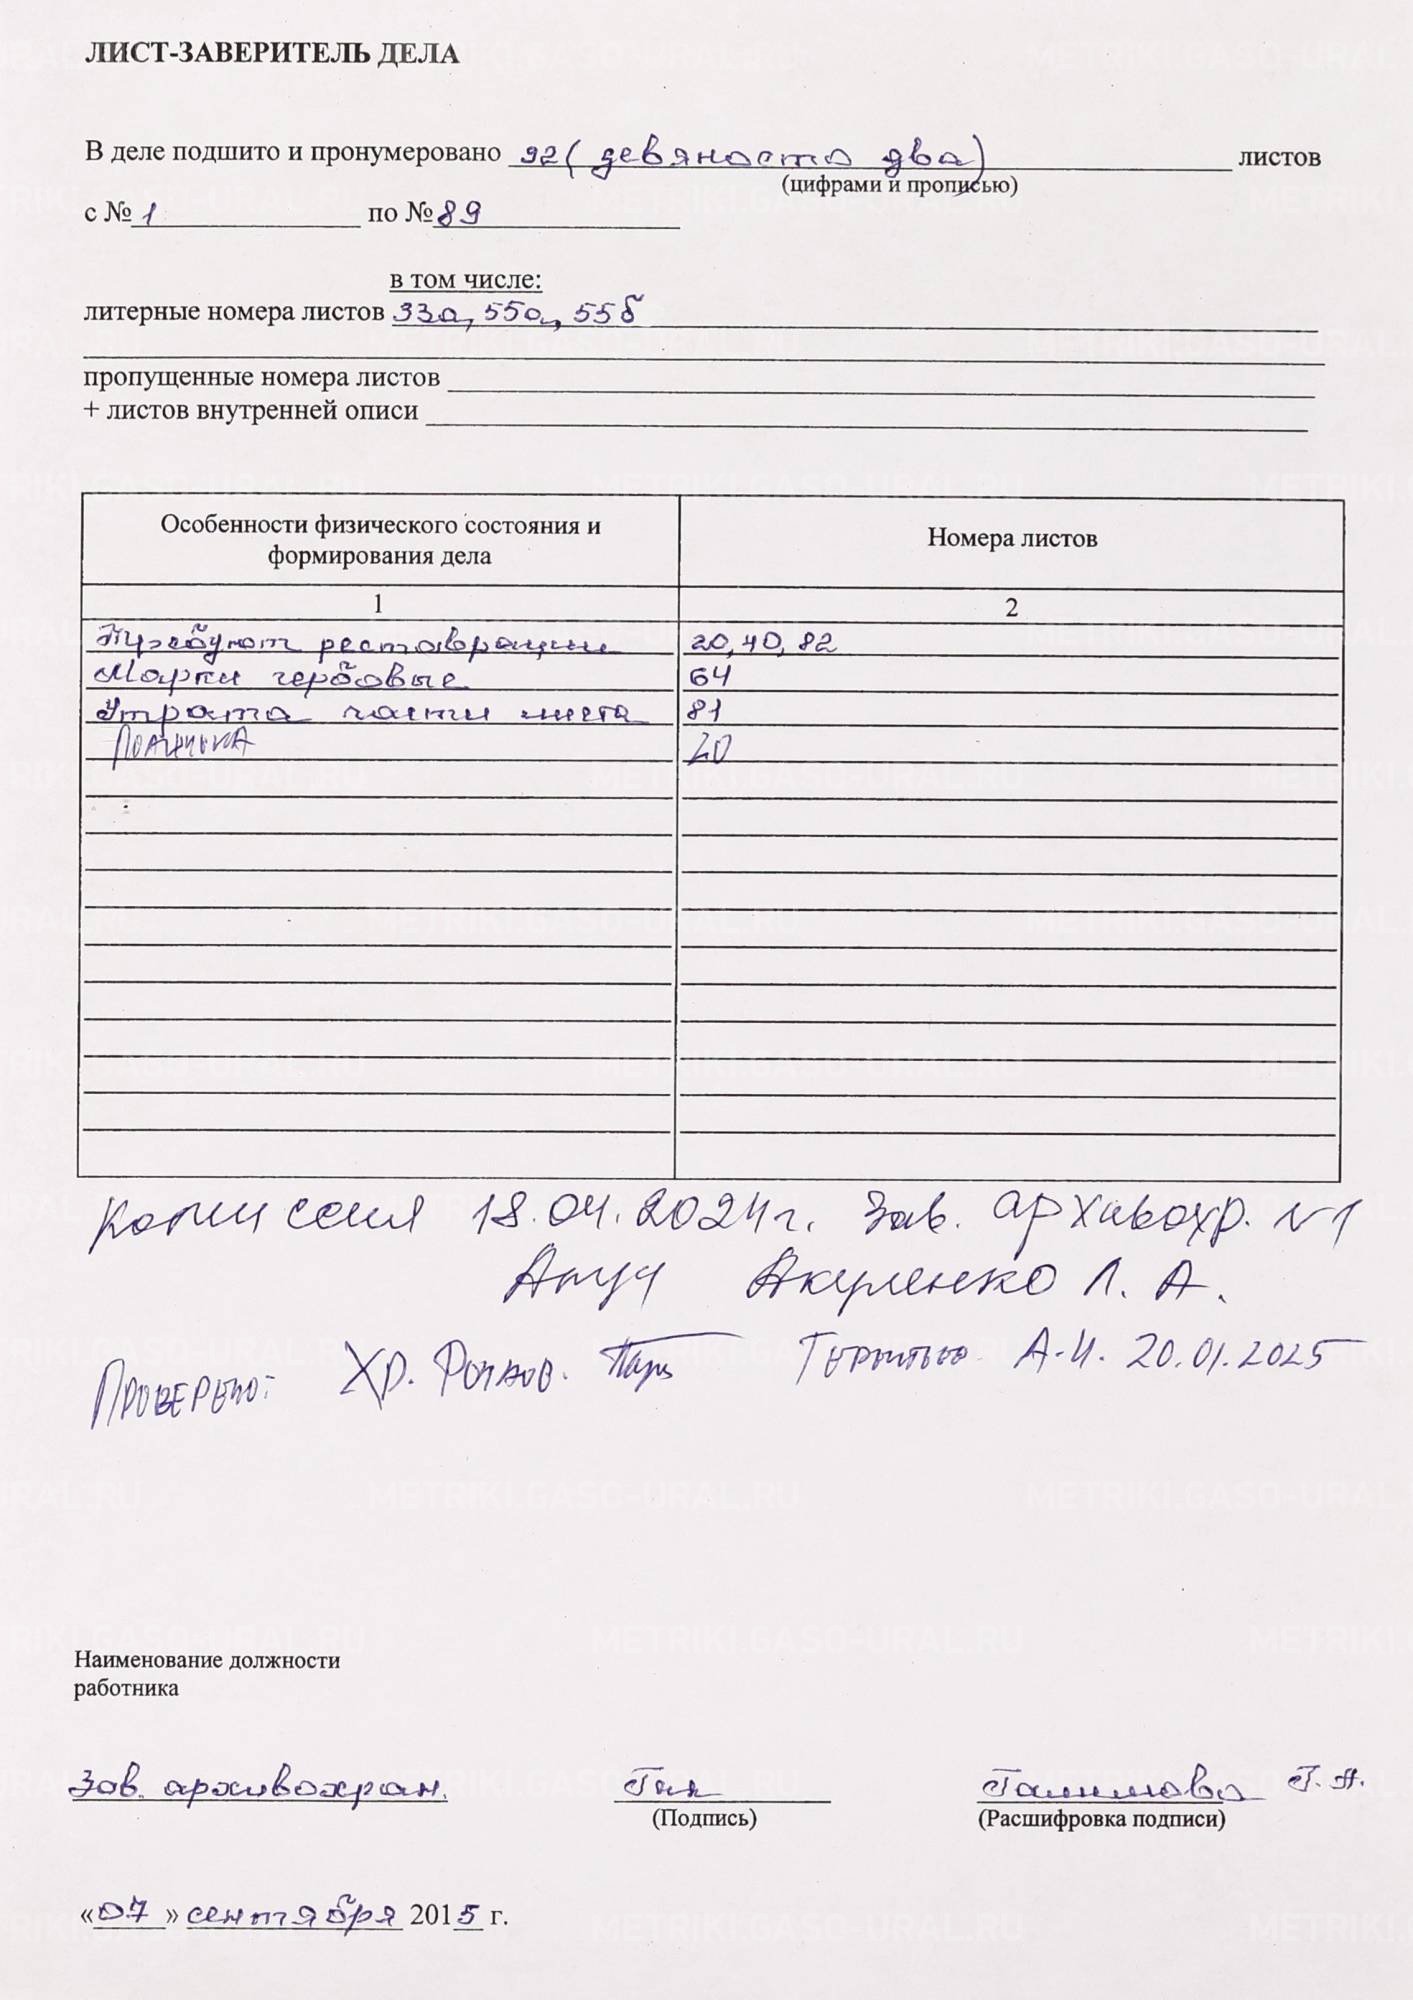 ЛИСТ-ЗАВЕРИТЕЛЬ ДЕЛА
В деле подшито и пронумеровано 92 (девяносто два) листов
(цифрами и прописью)
с № 1 по № 89
в том числе:
литерные номера листов 33а, 55а, 55б
пропущенные номера листов
+ листов внутренней описи
Особенности физического состояния и формирования дела
Номера листов
1 2
Требуют реставрации 20, 40, 82
Марки гербовые 64
Утрата части листа 81
20
Комиссия 18.04.2024г. Зав. архивохр. №1
Акуленко Л. А.
Проверено: Хр. Фондов. А.И. 20.01.2025
Наименование должности
работника
Зав. архивохран. Галимова Г. А.
(Подпись) (Расшифровка подписи)
«07» сентября 2015 г.
METRIKI.GASO-URAL.RU